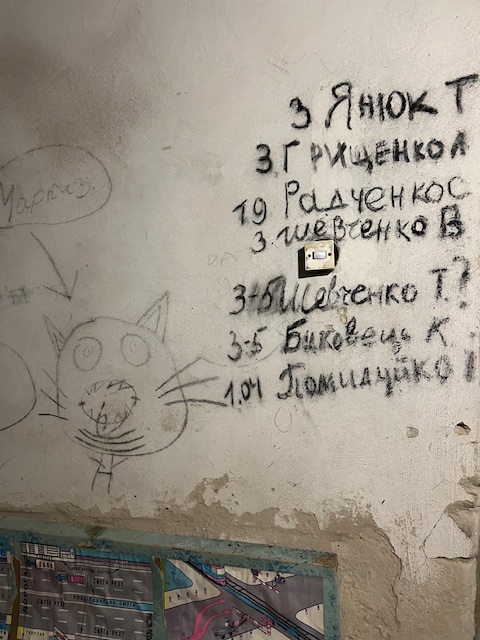 Маркиз.
3 Янюк Т
3 Грищенко Л
19 Радченко С
3 Шевченко В
3+5 Шевченко Т.?
3-5 Биковець К
1.04 Помилуйко І